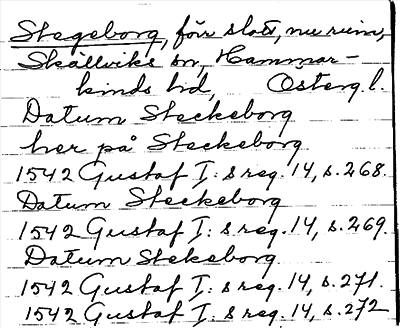 Stegeborg, förr slott, nu ruin,
Skällviks sn, Hammar-
kinds hd, Österg.l.
Datum Steckeborg
her på Steckeborg
1542 Gustaf I:s reg. 14, s. 268.
Datum Steckeborg
1542 Gustaf I:s reg. 14, s. 269.
Datum Stekeborg
1542 Gustaf I:s reg. 14, s. 271.
1542 Gustaf I:s reg. 14, s. 272